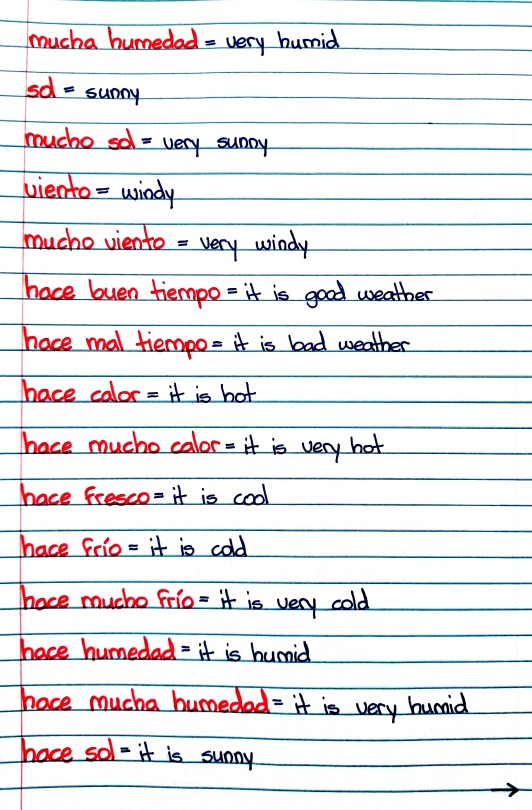 mucha humedad = very humid
sol = sunny
mucho sol = very sunny
viento = windy
mucho viento = very windy
hace buen tiempo = it is good weather
hace mal tiempo = it is bad weather
hace calor = it is hot
hace mucho calor = it is very hot
hace fresco = it is cool
hace frío = it is cold
hace mucho frío = it is very cold
hace humedad = it is humid
hace mucha humedad = it is very humid
hace sol = it is sunny
→